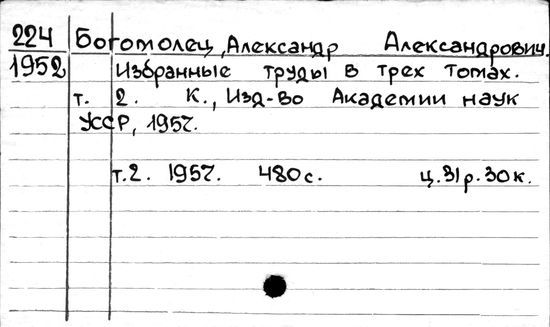 224 Богомолец, Александр Александрович.
1952 Избранные труды в трех томах.
т. 2. К., Изд-во Академии наук
УССР, 1957.
т.2. 1957. 480с. ц.31р.30к.